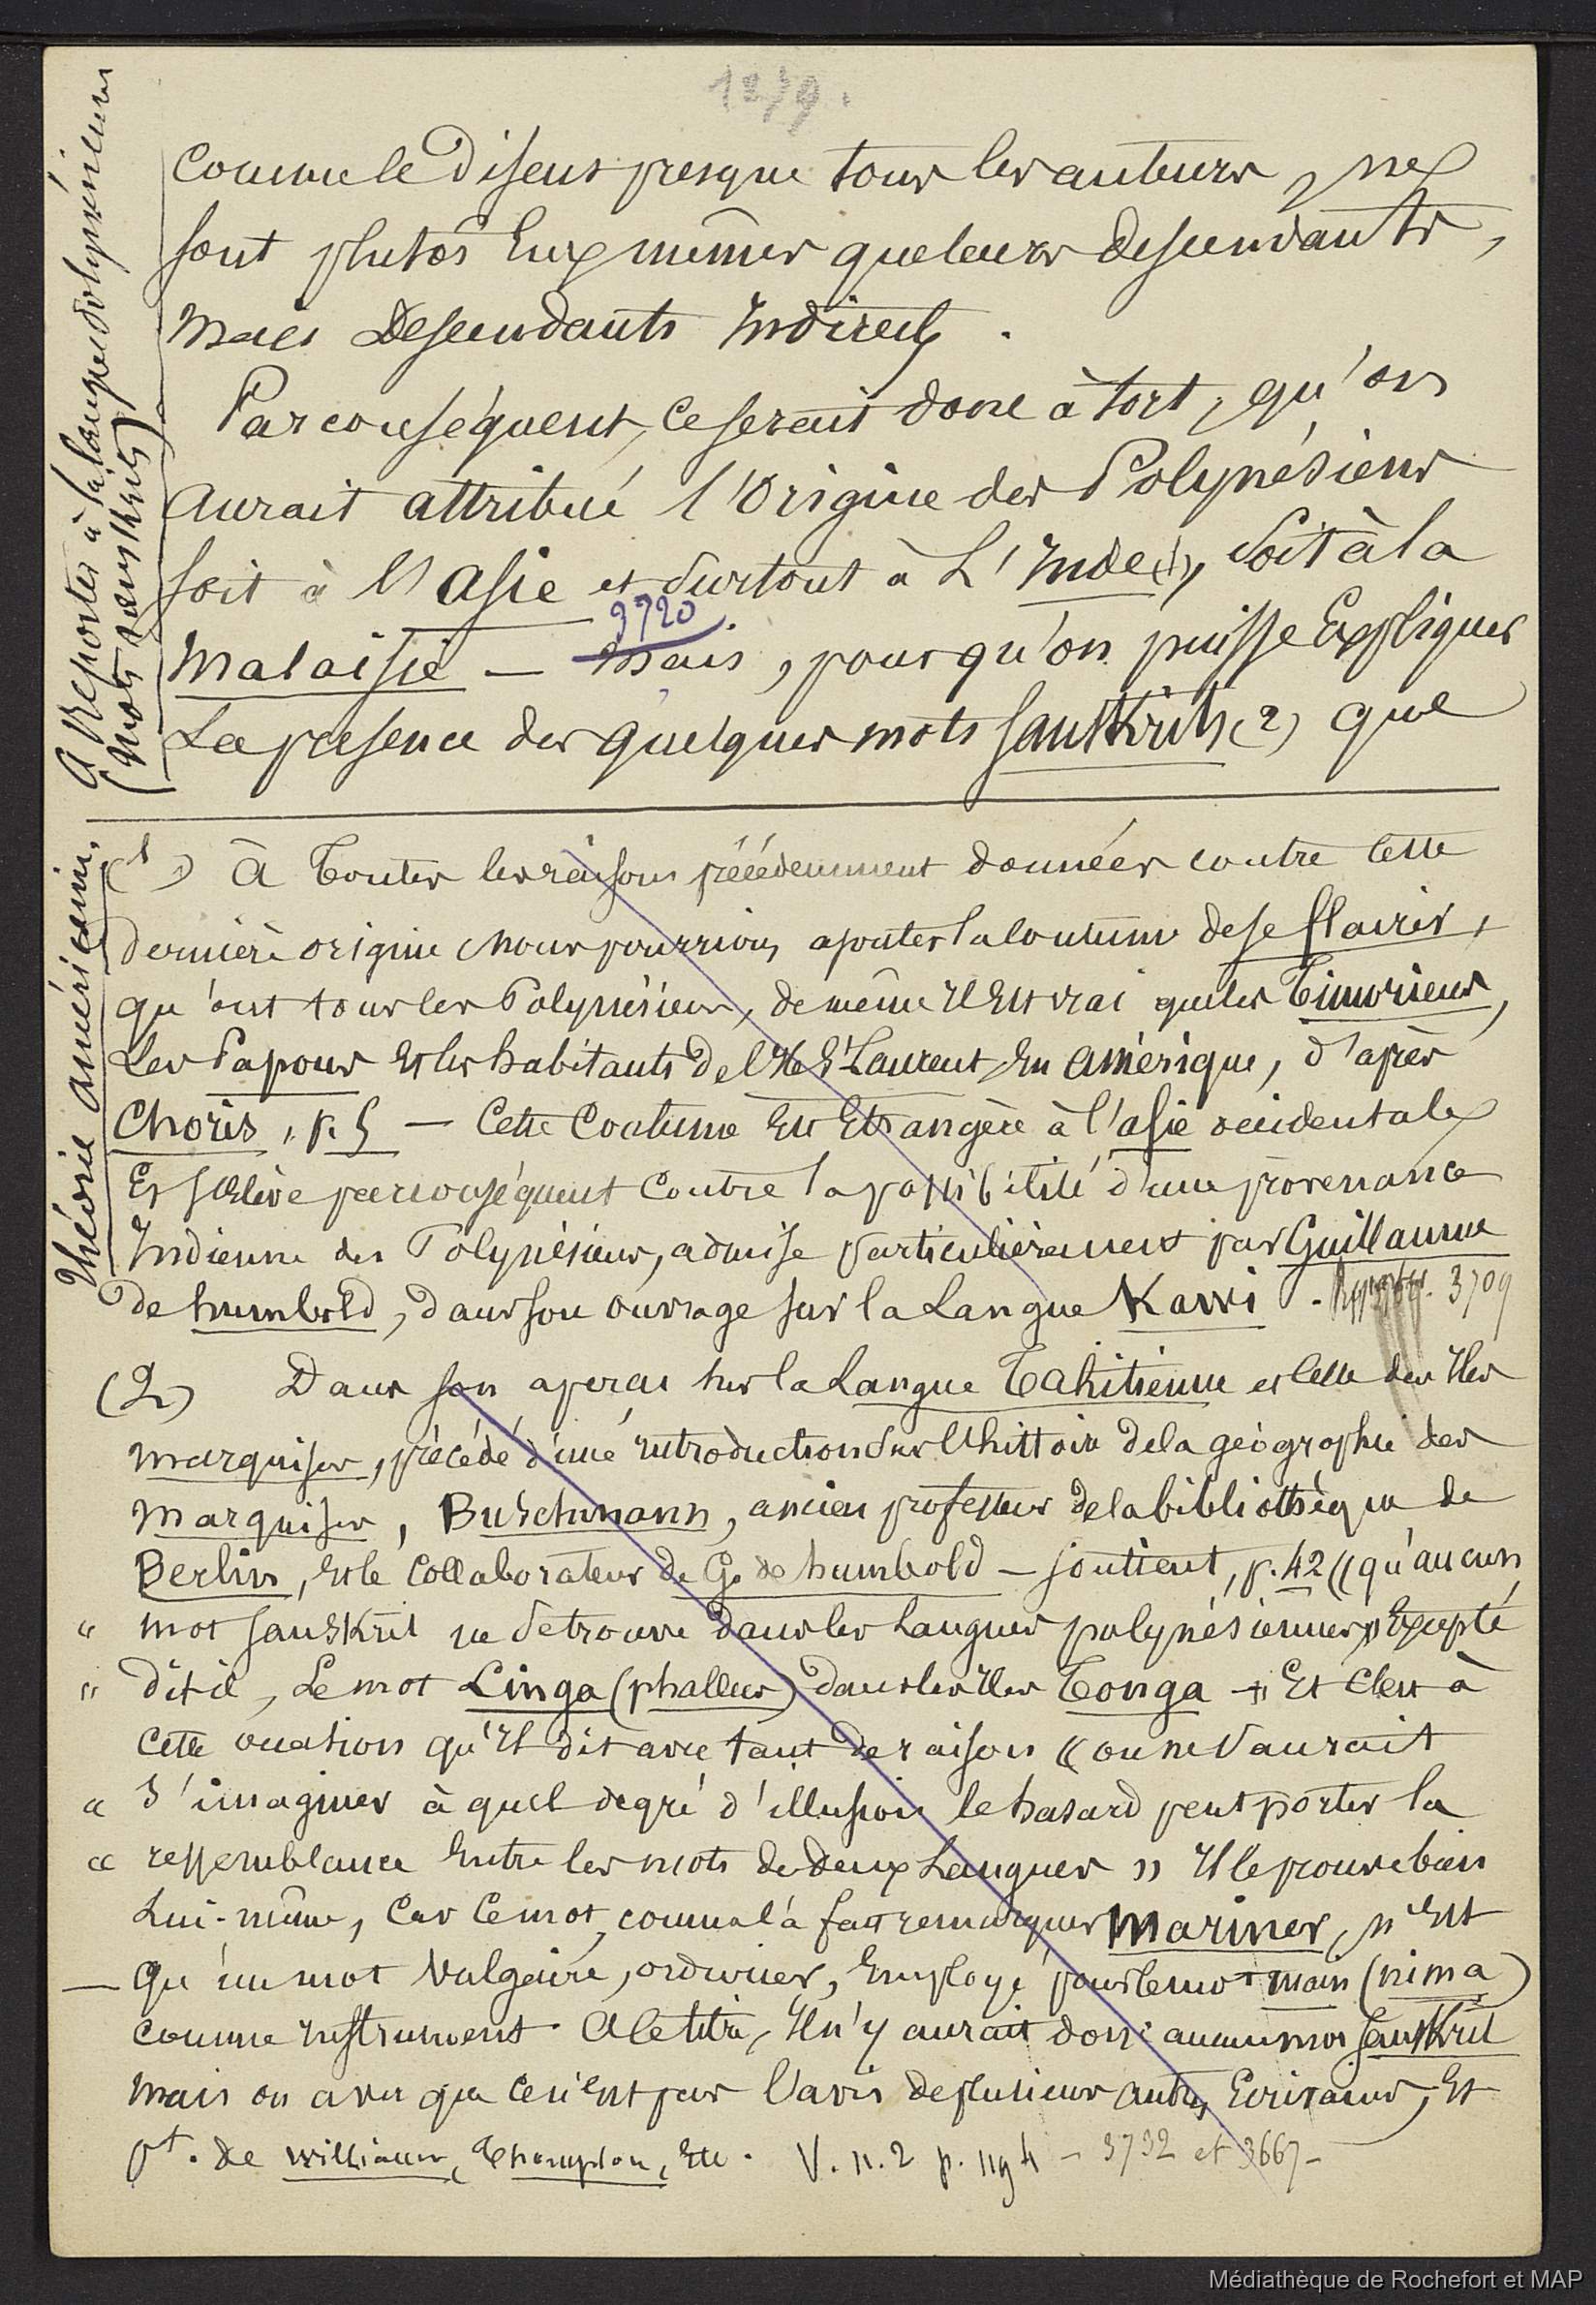 1279.
comme le disent presque tous les auteurs, ne
sont plutôt eux mêmes que leurs descendants,
mais Descendants Indirects.
Par conséquent, ce serait donc à tort, qu'on
aurait attribué l'origine des Polynésiens
soit à l'Asie et surtout à L'Inde (1), soit à la
3720
Malaisie — Mais, pour qu'on puisse Expliquer
La présence des quelques mots Sanskrits (2) que
A Reporter à la langue Polynésienne
(Mots sanskrits)
théorie américaine.
(1) à toutes les raisons précédemment données contre cette
dernière origine nous pourrions ajouter la coutume de se flairer,
qu'ont tous les Polynésiens, de même il est vrai que les Timoriens,
les Papous et les habitants de l'Ile St Laurent, en Amérique, d'après
Choris, p. 5 — Cette Coutume est Etrangère à l'asie occidentale
Et s'élève par conséquent contre la possibilité d'une provenance
Indienne des Polynésiens, admise particulièrement par Guillaume
de humbold, dans son ouvrage sur la Langue Kawi. 3709
(2) Dans son aperçu sur la Langue Tahitienne et celle des Iles
marquises, précédé d'une introduction sur l'histoire de la géographie des
marquises, Buschmann, ancien professeur de la bibliothèque de
Berlin, et le collaborateur de G. de humbold — soutient, p. 42 « qu'aucun
" mot sanskrit ne se trouve dans les langues polynésiennes » Excepté
" dit-il, Le mot Linga (phallus) dans les Iles Tonga — Et c'est à
cette occasion qu'il dit avec tant de raison « on ne saurait
« s'imaginer à quel degré d'illusion le hasard peut porter la
« ressemblance entre les mots de deux Langues » Il le prouve bien
Lui-même, car ce mot, comme l'a fait remarquer Mariner, n'est
— qu'un mot vulgaire, ordurier, Employé pour le mot main (nima)
comme instrument. A ce titre, il n'y aurait donc aucun mot Sanskrit
mais on a vu que ce n'est pas l'avis de plusieurs autres Ecrivains, Et
pt. de williams, Thompson, Etc. V. n. 2 p. 1194 — 3732 et 3667 —
Médiathèque de Rochefort et MAP